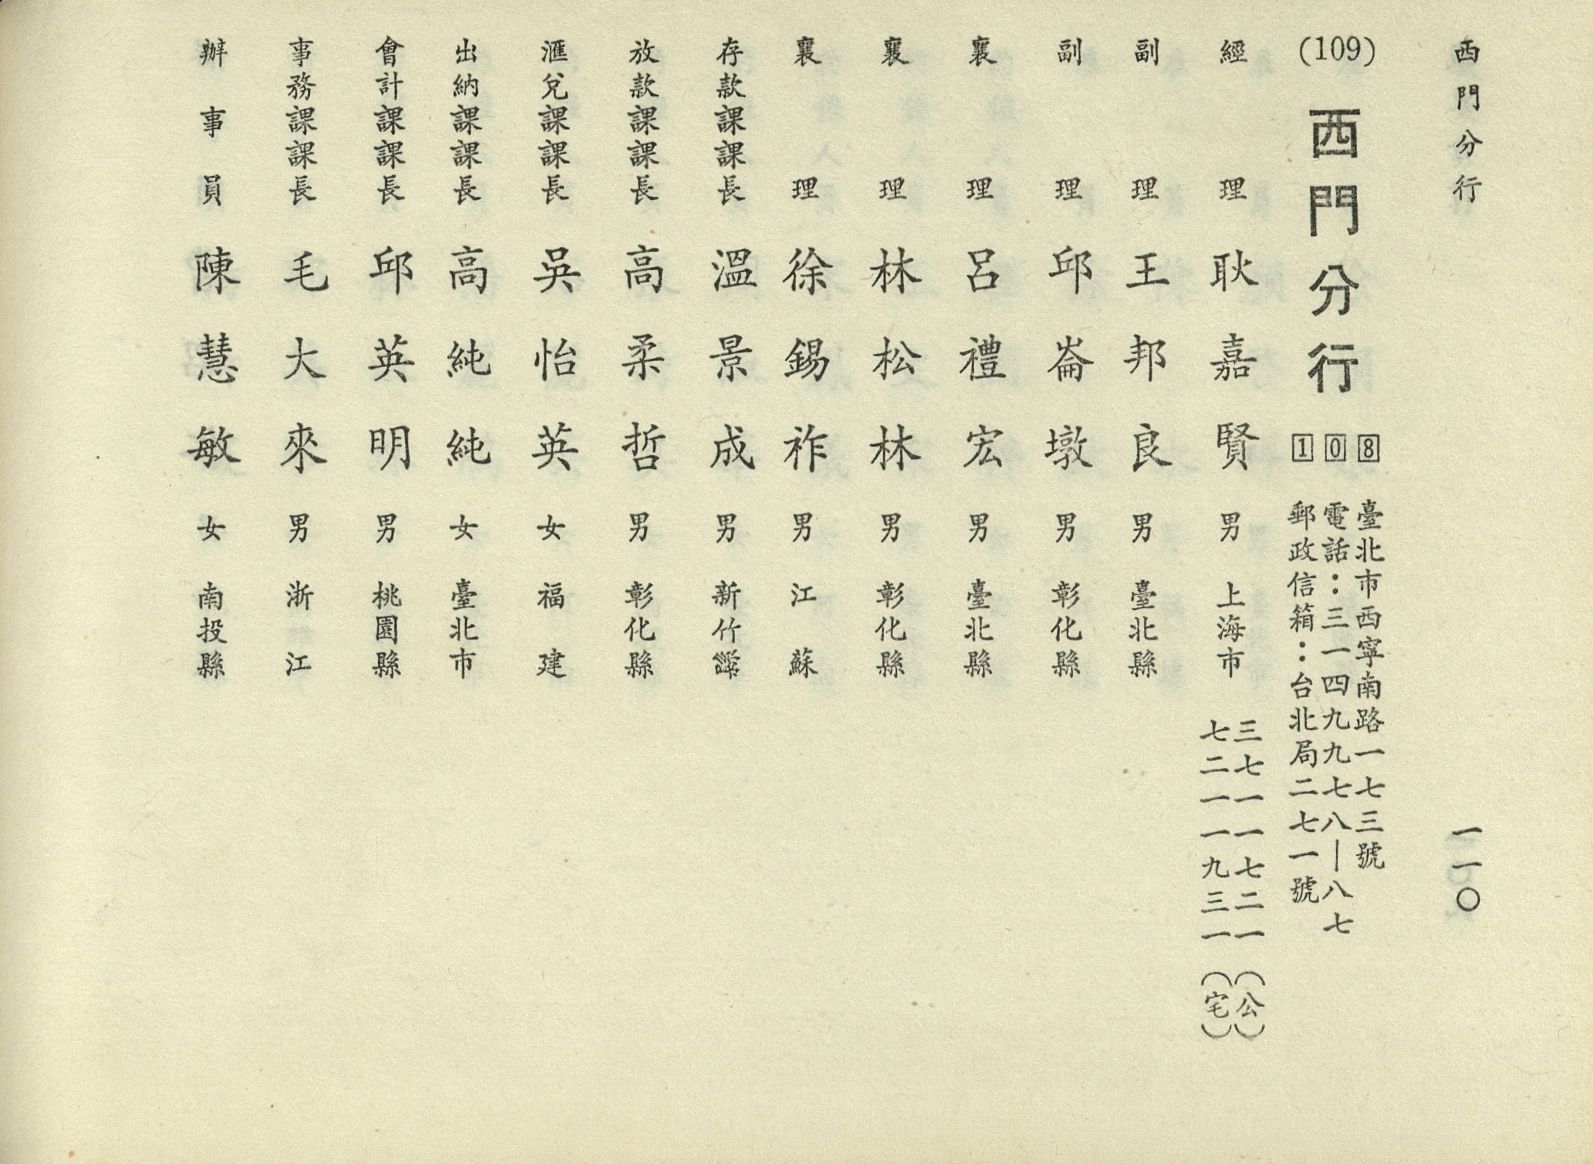 西門分行
一一〇
(109) 西門分行
108
臺北市西寧南路一七三號
電話：三一四九九七八｜八七
郵政信箱：台北局二七一號
經理 耿嘉賢 男 上海市 三七一一七二一（公）
七二一一九三一（宅）
副理 王邦良 男 臺北縣
副理 邱崙墩 男 彰化縣
襄理 呂禮宏 男 臺北縣
襄理 林松林 男 彰化縣
襄理 徐錫祚 男 江蘇
存款課課長 溫景成 男 新竹縣
放款課課長 高柔哲 男 彰化縣
滙兌課課長 吳怡英 女 福建
出納課課長 高純純 女 臺北市
會計課課長 邱英明 男 桃園縣
事務課課長 毛大來 男 浙江
辦事員 陳慧敏 女 南投縣